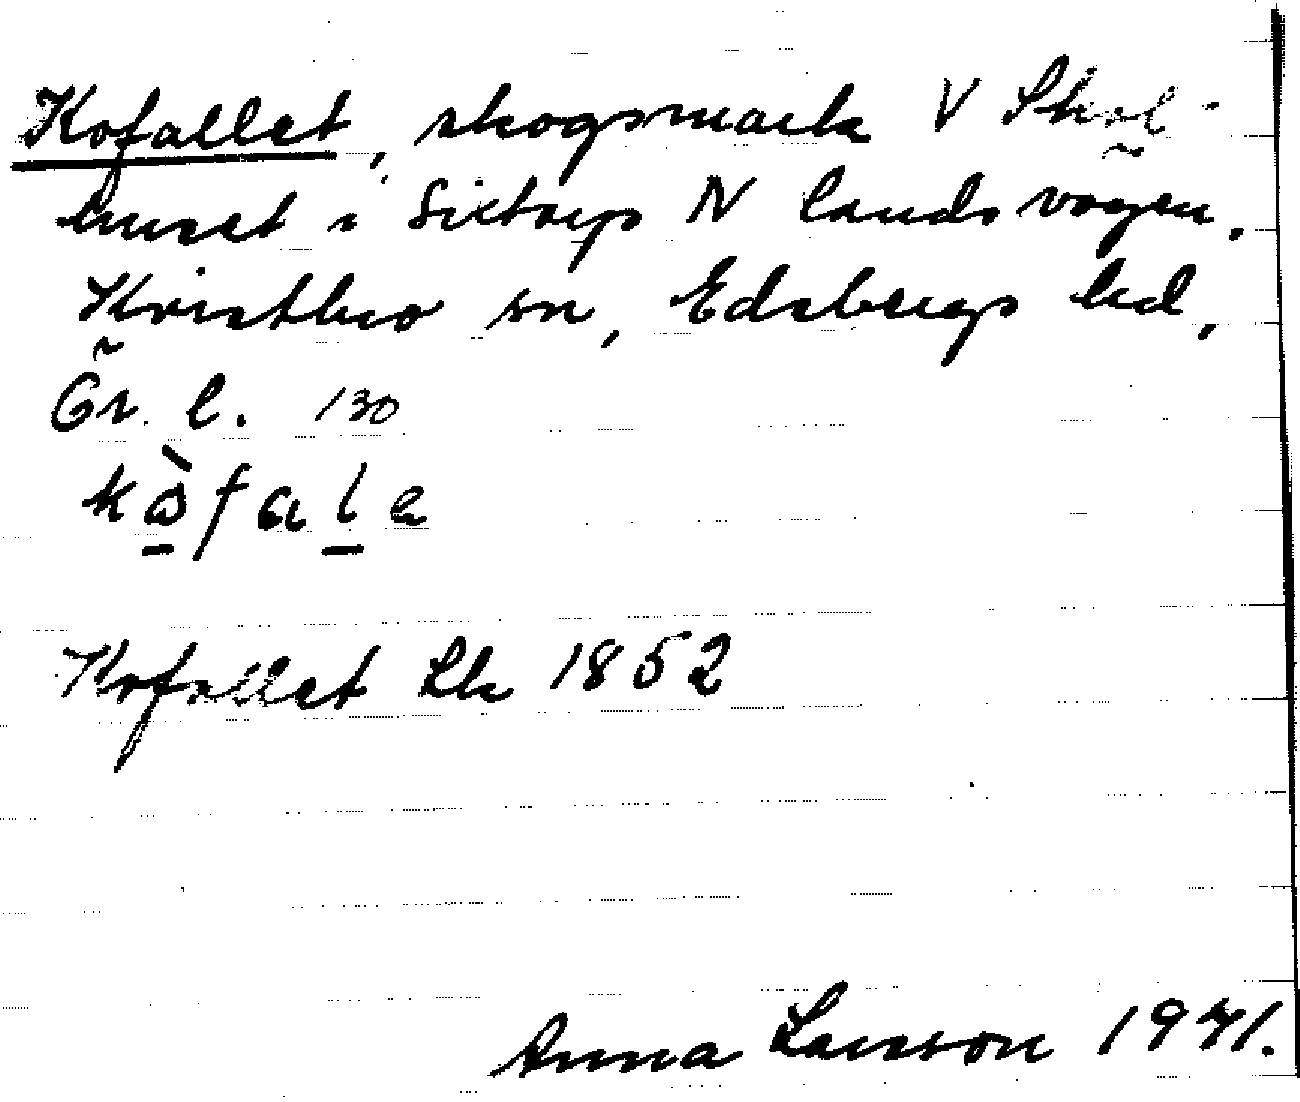 Kofallet, skogsmark V Skol-
huset i Sixtorp N landsvägen.
Kvistbro sn, Edsbergs hd,
Ör. l. 130
kòfala
Kofallet Lk 1852
Anna Larsson 1971.